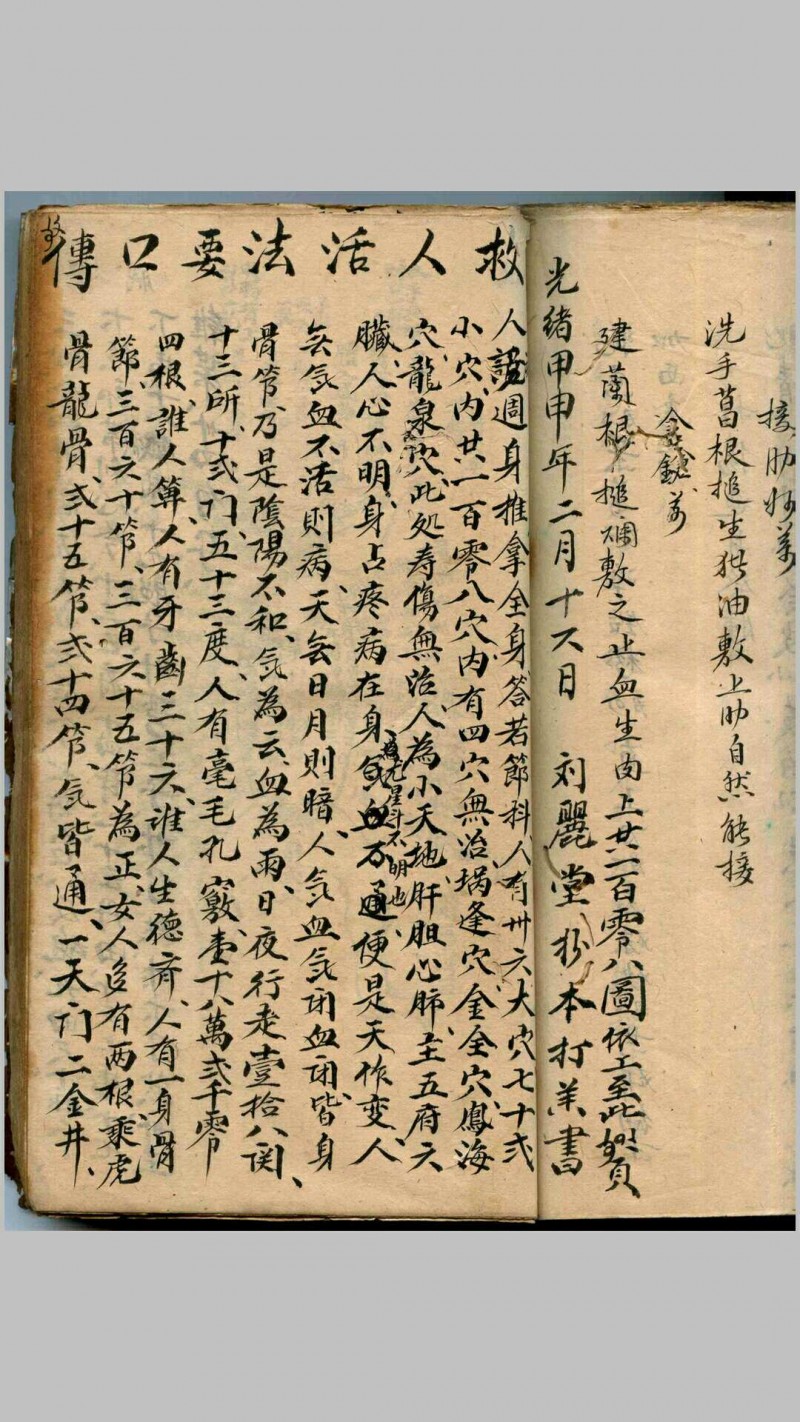 接肋妙药
洗手菖根搥生猪油敷上肋自然能接
金鎗药
建蘭根搥爛敷之止血生肉上共一百零八圖依工至此賀
光緒甲申年二月十六日 刘麗堂抄本打羊書
救人活法要口傳
人説週身推拿全身答若節科人有卅六大穴七十弍
小穴内共一百零八穴内有四穴無治埚逢穴金全穴鳳海
穴龍泉穴此処寿傷無治人為小天地肝胆心肺主五府六
臟人心不明身占疼病在身為如星斗不明也氣血不通便是天作变人
無氣血不活則病天無日月則暗人氣血氣闭血闭皆身
骨管乃是陰陽不和氣為云血為雨日夜行走壹拾八関
十三所十弍门五十三度人有毫毛孔竅壹十八萬弍千零
四根誰人算人有牙齒三十六谁人生德齊人有一身骨
節三百六十管三百六十五管為正女人多有两根乘虎
骨龍骨弍十五管弍十四管氣皆通一天门二金井